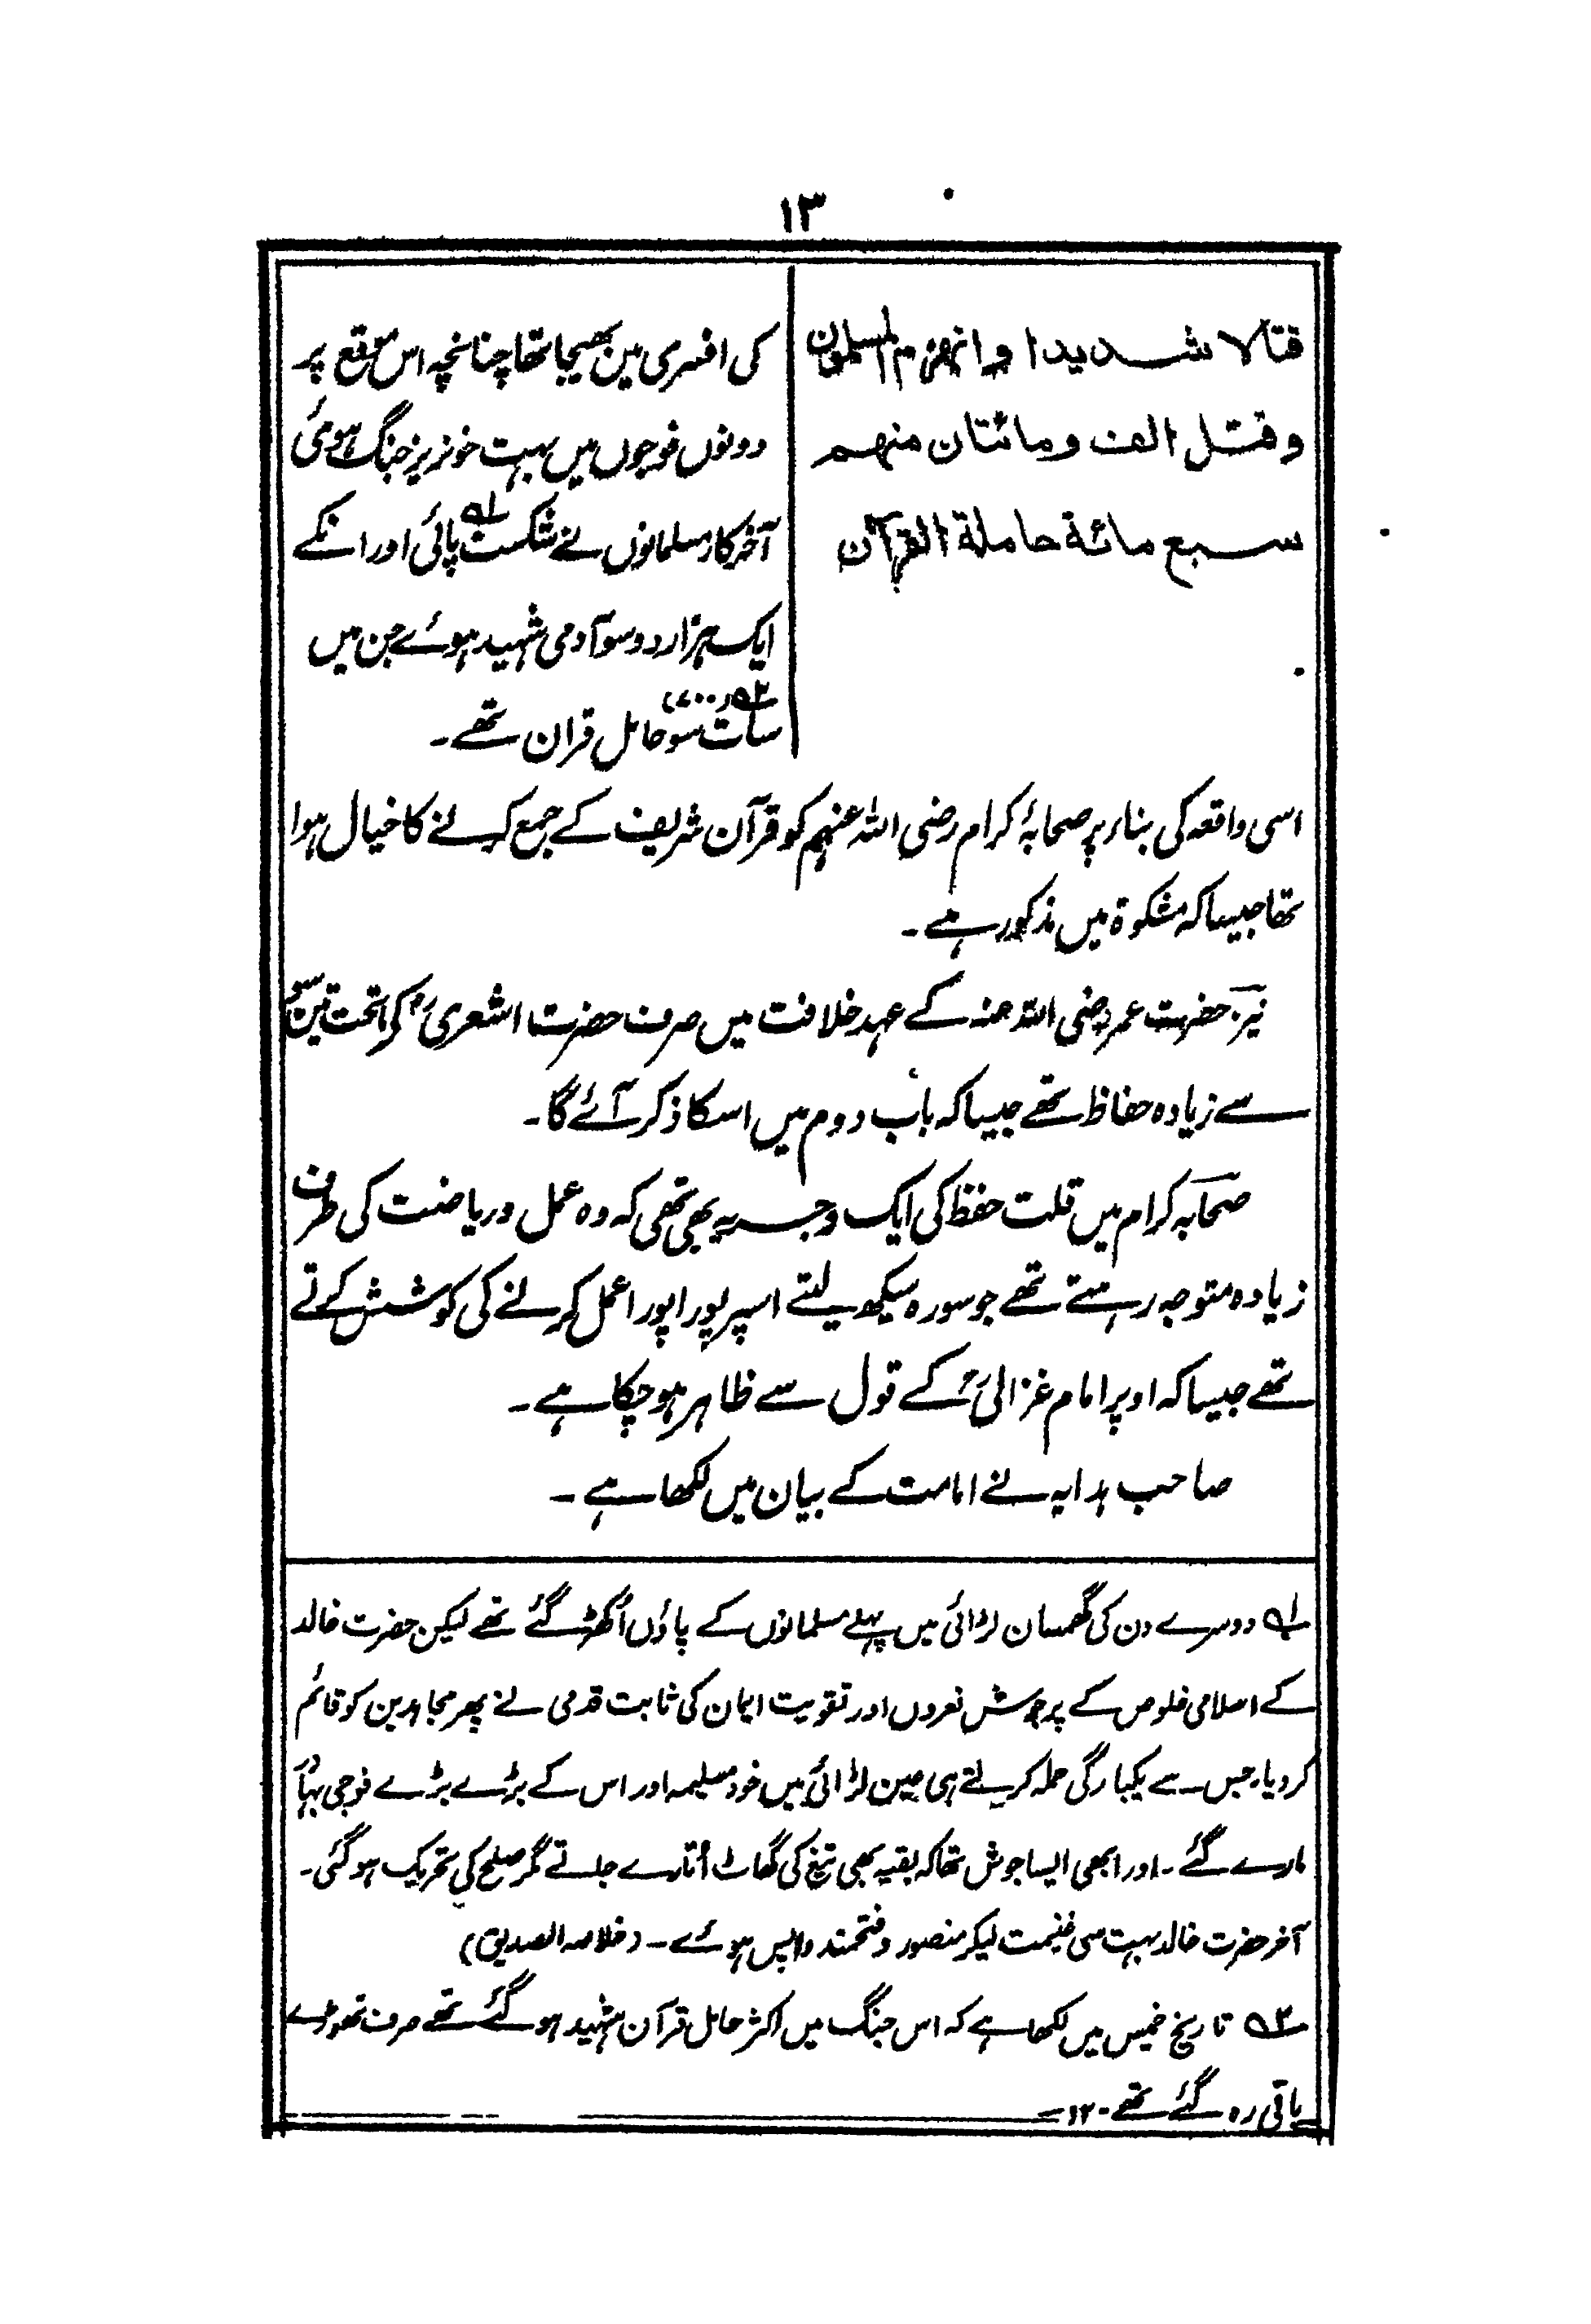 ۱۳
قتالا شدیدا وانهزم المسلمون
وقتل الف ومائتان منهم
سبع مائة حاملة القرآن
کی افسری مین بھیجا تھا چنانچہ اس موقع پر
دونوں فوجوں میں بہت خونریز جنگ ہوئی
آخرکار مسلمانوں نے شکست ۱ پائی اور انکے
ایک ہزار دو سو آدمی شہید ہوئے جن میں
سات سو (۷۰۰) ۲ حامل قران تھے۔
اسی واقعہ کی بناء پر صحابۂ کرام رضی اللہ عنہم کو قرآن شریف کے جمع کرنے کا خیال ہوا
تھا جیسا کہ مشکوۃ میں مذکور ہے۔
نیز حضرت عمر رضی اللہ عنہ کے عہد خلافت میں صرف حضرت اشعری رض کے ماتحت تین سو
سے زیادہ حفاظ تھے جیسا کہ باب دوم میں اسکا ذکر آئے گا۔
صحابہ کرام میں قلت حفظ کی ایک وجہ یہ بھی تھی کہ وہ عمل و ریاضت کی طرف
زیادہ متوجہ رہتے تھے جو سورہ سیکھ لیتے اسپر پورا پورا عمل کرنے کی کوشش کرتے
تھے جیسا کہ اوپر امام غزالی رح کے قول سے ظاہر ہو چکا ہے۔
صاحب ہدایہ نے امامت کے بیان میں لکھا ہے۔
۱ دوسرے دن کی گھمسان لڑائی میں پہلے مسلمانوں کے پاؤں اُکھڑ گئے تھے لیکن حضرت خالد
کے اسلامی خلوص کے پرجوش نعروں اور تقویت ایمان کی ثابت قدمی نے پھر مجاہدین کو قائم
کردیا، جس سے یکبارگی حملہ کرتے ہی عین لڑائی میں خود مسلیمہ اور اس کے بڑے بڑے فوجی بہادر
مارے گئے۔ اور ابھی ایسا جوش تھا کہ بقیہ بھی تیغ کی گھاٹ اُتارے جاتے مگر صلح کی تحریک ہوگئی۔
آخر حضرت خالد بہت سی غنیمت لیکر منصور و فتحمند واپس ہوئے۔ (خلاصہ الصدیق)
۲ تاریخ خمیس میں لکھا ہے کہ اس جنگ میں اکثر حامل قرآن شہید ہو گئے تھے صرف تھوڑے
باقی رہ گئے تھے۔ ۱۲